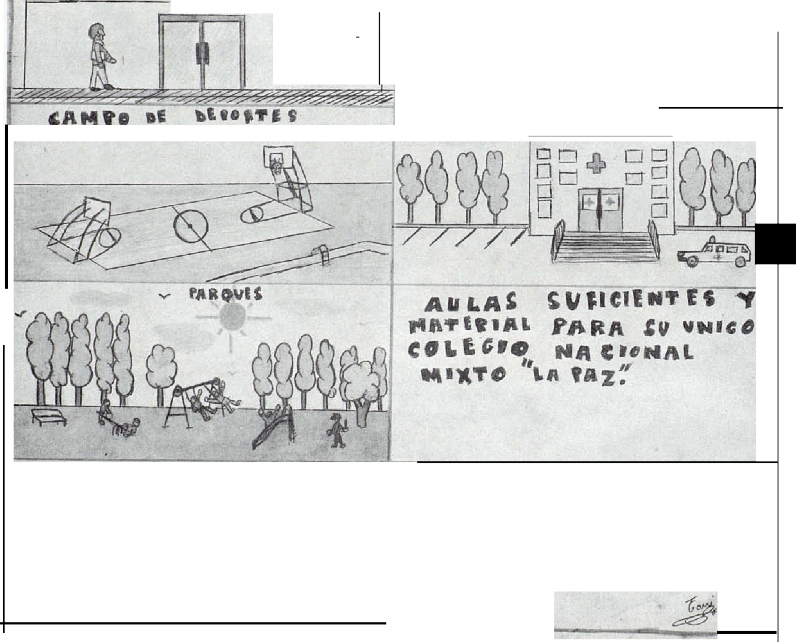 CAMPO DE DEPORTES
PARQUES
AULAS SUFICIENTES Y
MATERIAL PARA SU UNICO
COLEGIO NACIONAL
MIXTO "LA PAZ".